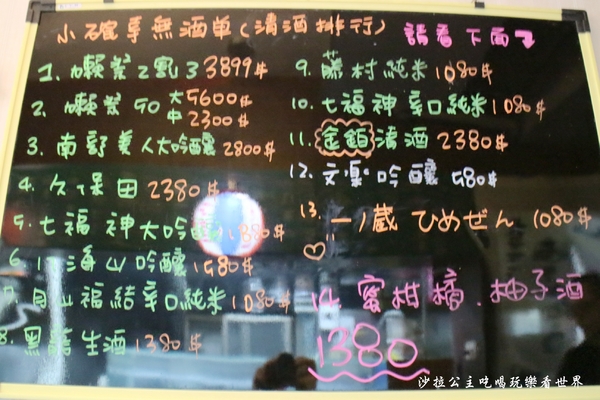 小確幸無酒单(清酒排行) 請看下面
1. 獺祭2割3 3899丰
2. 獺祭50 大5600丰
中2300丰
3. 南部美人大吟釀 2800丰
4. 久保田 2380丰
5. 七福神大吟釀 1380丰
6. 八海山吟釀 1580丰
7. 月山福結辛口純米 1080丰
8. 黑龍生酒 1380丰
9. 藤村純米 1080丰
10. 七福神辛口純米 1080丰
11. 金鉑清酒 2380丰
12. 文樂吟釀 980丰
13. 一ノ蔵 ひめぜん 1080丰
14. 蜜柑橘、柚子酒
1380
沙拉公主吃喝玩樂看世界